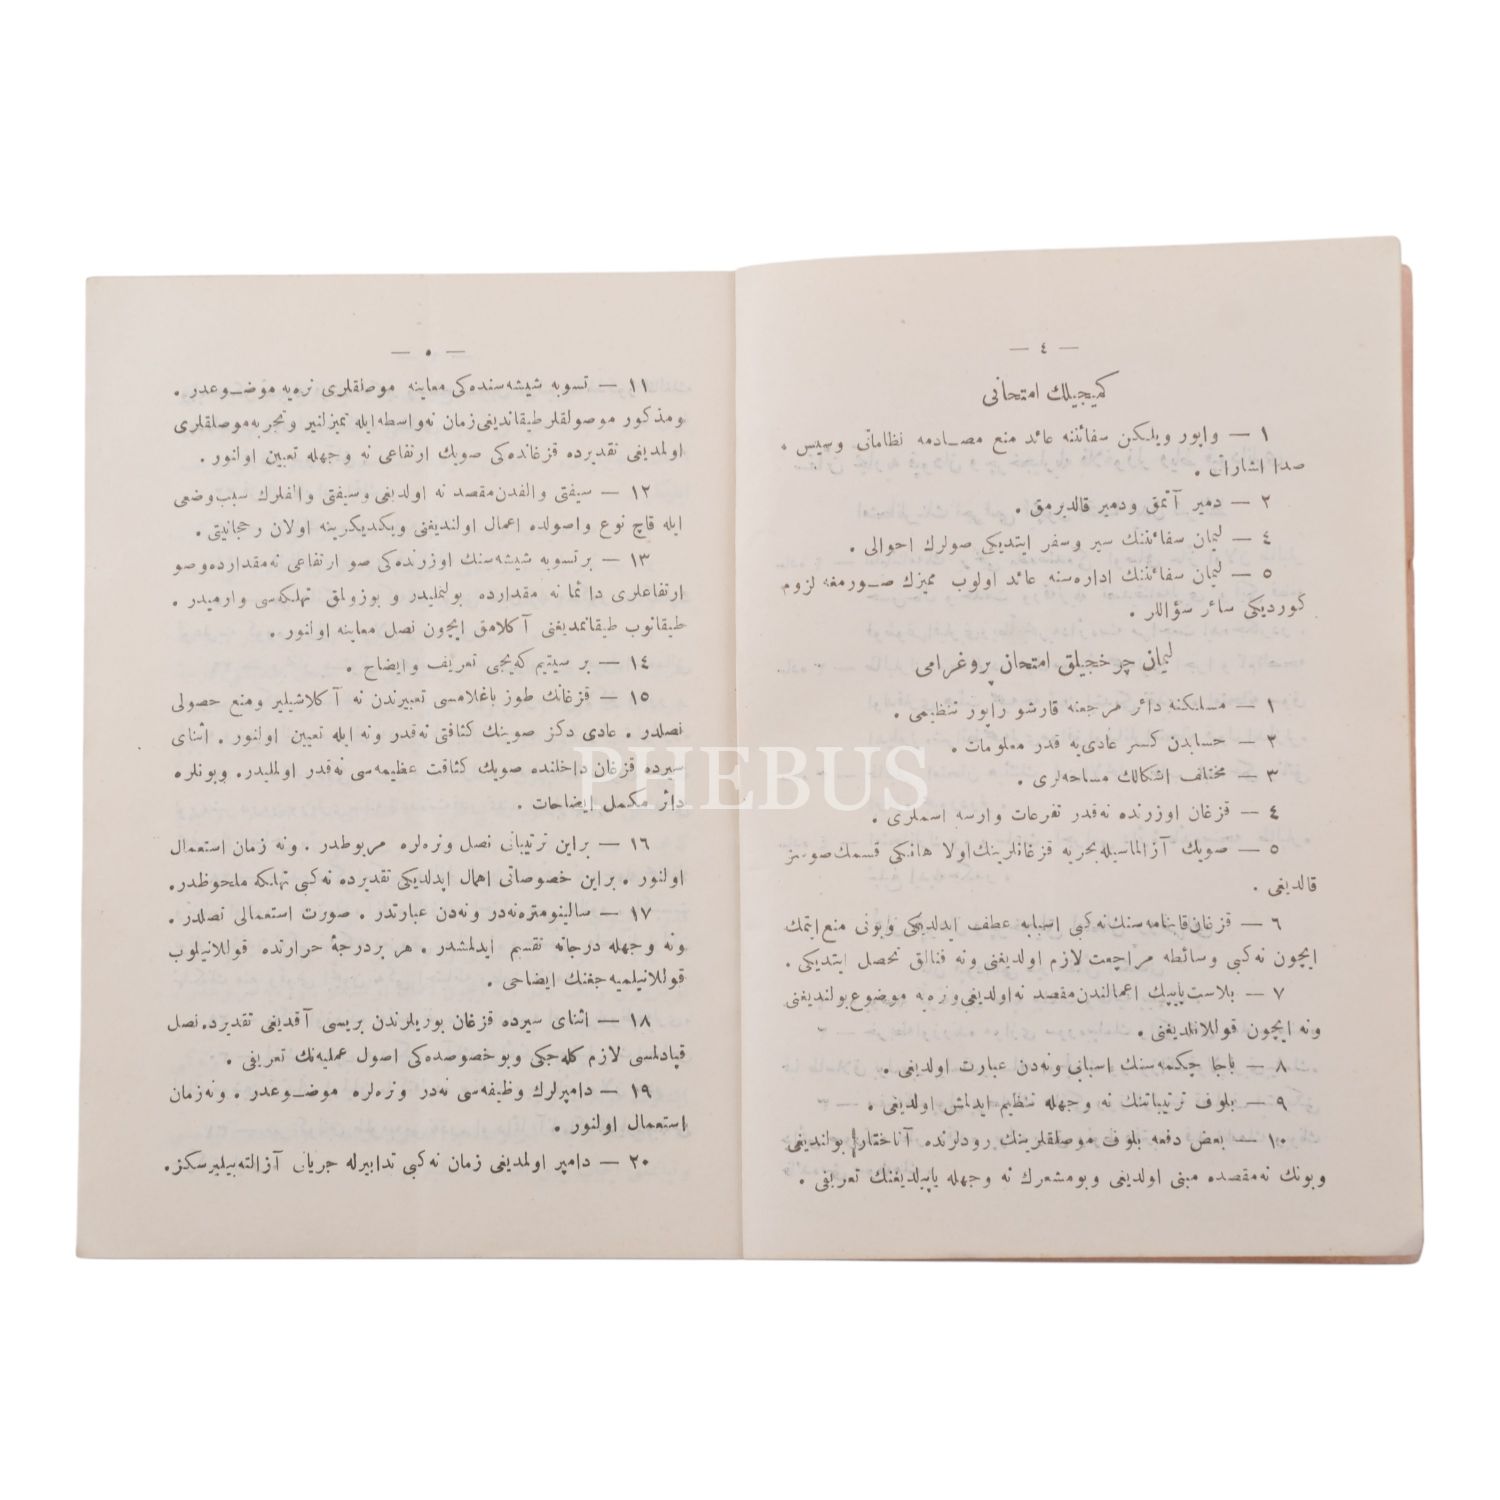 — ٤ —
كميجيلك امتحانى
١ — واپور ويلكن سفائننه عائد منع مصادمه نظاماتى وسيس ،
صدا اشاراتى .
٢ — دمير آتمق ودمير قالديرمق .
٤ — ليمان سفائننك سير وسفر ايتديكى صولرك احوالى .
٥ — ليمان سفائننك اداره‌سنه عائد اولوب مميزك صورمغه لزوم
كورديكى سائر سؤاللر .
ليمان چرخجيلق امتحان پروغرامى
١ — مسلكنه دائر مرجعنه قارشو راپور تنظيمى .
٢ — حسابدن كسر عادى‌يه قدر معلومات .
٣ — مختلف اشكالك مساحه‌لرى .
٤ — قزغان اوزرنده نه‌قدر تفرعات وارسه اسملرى .
٥ — صويك آزالماسيله بحريه قزغانلرينك اولا هانكى قسمك صوسز
قالديغى .
٦ — قزغان قاينامه‌سنك نه‌كبى اسبابه عطف ايدلديكى وبونى منع ايتمك
ايچون نه‌كبى وسائطه مراجعت لازم اولديغى ونه فنالق تحصل ايتديكى .
٧ — بلاست پايپك اعمالندن مقصد نه اولديغى ونره‌يه موضوع بولنديغى
ونه ايچون قوللانلديغى .
٨ — باجا چكمه‌سنك اسبابى ونه‌دن عبارت اولديغى .
٩ — بلوف ترتيباتنك نه وجهله تنظيم ايدلمش اولديغى .
١٠ — بعض دفعه بلوف موصلقلرينك رودلرنده آناختارلر بولنديغى
وبونك نه‌مقصده مبنى اولديغى وبومشعرك نه وجهله ياپيلديغنك تعريفى .
— ٥ —
١١ — تسويه شيشه‌سنده‌كى معاينه موصلقلرى نره‌يه موضوعدر .
ومذكور موصولقلر طيقانديغى زمان نه‌واسطه ايله تميزلنير وتجربه موصلقلرى
اولمديغى تقديرده قزغانده‌كى صويك ارتفاعى نه وجهله تعيين اولنور .
١٢ — سيفتى والفدن مقصد نه اولديغى وسيفتى والفلرك سبب وضعى
ايله قاچ نوع واصولده اعمال اولنديغنى ويكديكرينه اولان رجحانيتى .
١٣ — بر تسويه شيشه‌سنك اوزرنده‌كى صو ارتفاعى نه‌مقدارده وصو
ارتفاعلرى دائما نه مقدارده بولنمليدر و بوزولمق تهلكه‌سى وارميدر .
طيقانوب طيقانمديغنى آكلامق ايچون نصل معاينه اولنور .
١٤ — بر سيتيم كه‌يجى تعريف وايضاح .
١٥ — قزغانك طوز باغلامسى تعبيرندن نه آكلاشيلير ومنع حصولى
نصلدر . عادى دكز صوينك كثافتى نه‌قدر ونه ايله تعيين اولنور . اثناى
سيرده قزغان داخلنده صويك كثافت عظيمه‌سى نه‌قدر اولمليدر. وبونلره
دائر مكمل ايضاحات .
١٦ — براين ترتيباتى نصل ونره‌لره مربوطدر . ونه زمان استعمال
اولنور . براين خصوصاتى اهمال ايدلديكى تقديرده نه‌كبى تهلكه ملحوظدر.
١٧ — سالينومتره نه‌در ونه‌دن عبارتدر . صورت استعمالى نصلدر .
ونه وجهله درجاته تقسيم ايدلمشدر . هر بر درجۀ حرارتده قوللانيلوب
قوللانيلميه‌جغنك ايضاحى .
١٨ — اثناى سيرده قزغان بوريلرندن بريسى آقديغى تقديرده نصل
قپادلمسى لازم كله‌جكى وبوخصوصده‌كى اصول عمليه‌نك تعريفى .
١٩ — دامپرلرك وظيفه‌سى نه‌در ونره‌لره موضوعدر . ونه‌زمان
استعمال اولنور .
٢٠ — دامپر اولمديغى زمان نه‌كبى تدابيرله جريانى آزالته‌بيليرسكز.
PHEBUS